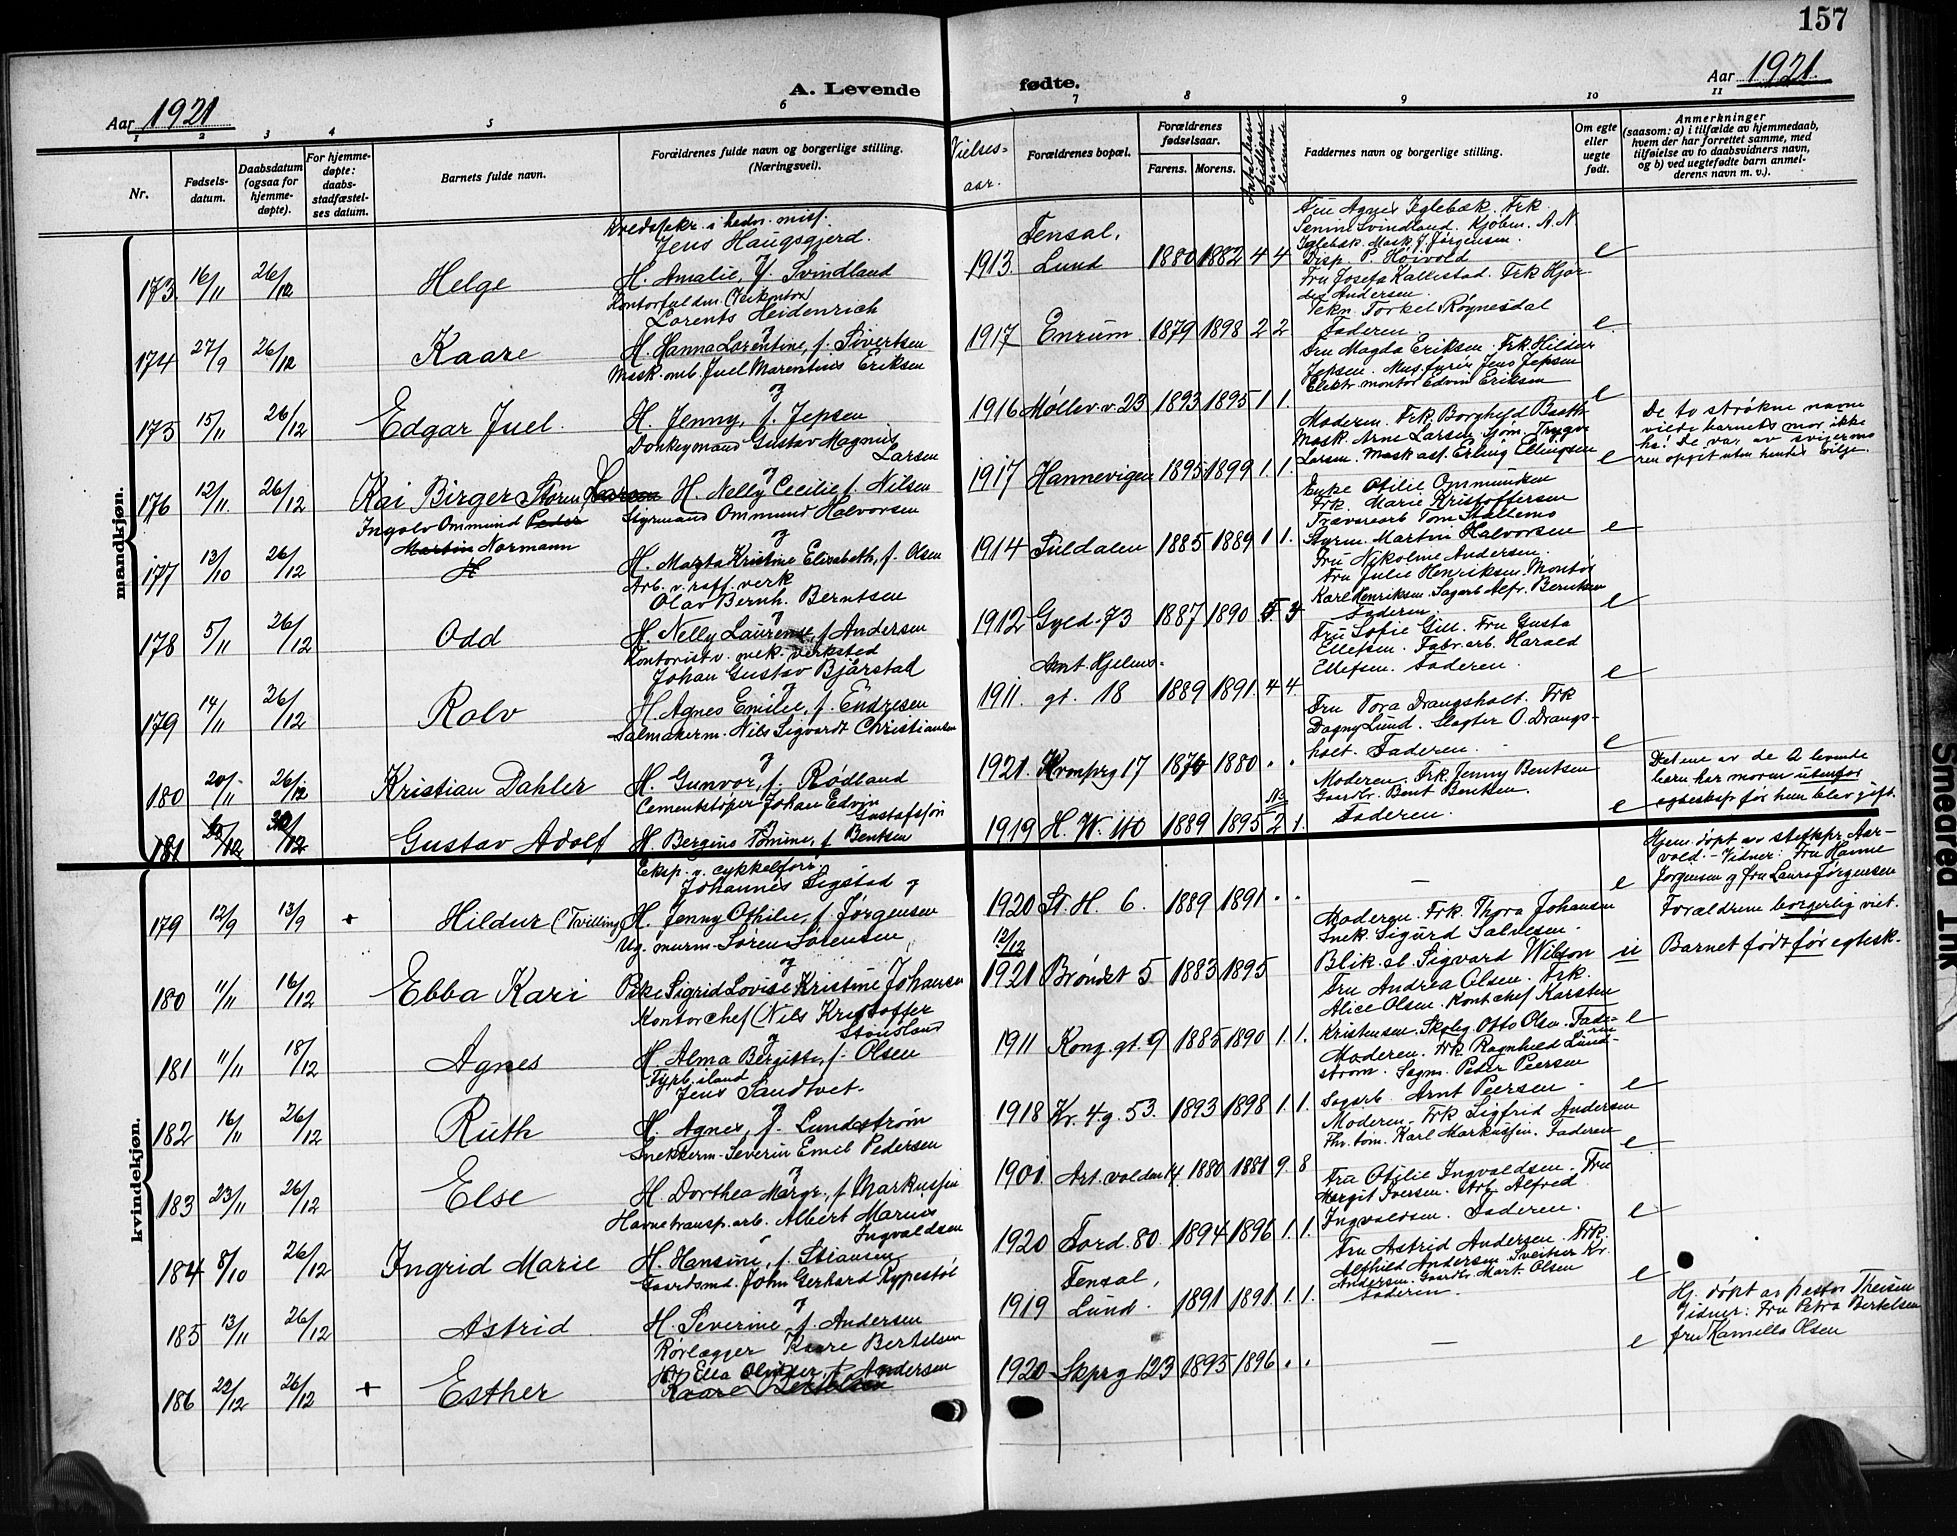 157
Aar 1921
A. Levende fødte.
Aar 1921.
1 2 3 4 5 6 7 8 9 10 11
Nr.
Fødsels-
datum.
Daabsdatum
(ogsaa for
hjemme-
døpte).
For hjemme-
døpte:
daabs-
stadfæstel-
ses datum.
Barnets fulde navn.
Forældrenes fulde navn og borgerlige stilling.
(Næringsvei).
Vielses-
aar.
Forældrenes bopæl.
Forældrenes
fødselsaar.
Farens. Morens.
Faddernes navn og borgerlige stilling.
Om egte
eller
uegte
født.
Anmerkninger
(saasom: a) i tilfælde av hjemmedaab,
hvem der har forrettet samme, med
tilføielse av to daabsvidners navn,
og b) ved uegtefødte barn anmel-
derens navn m. v.).
mandkjøn.
173 16/11 26/12 Helge
Kredssekr. i hedn. miss.
Jens Haugsgjerd.
og
H. Amalie, f. Svindland
1913. Tensal, Lund 1880 1882 4 4
Fru Agnes Eglebæk. Frk.
Senine Svindland. Kjøbm. A. N.
Eglebæk. Mask. J. Jørgensen.
Disp. P. Høivold
e
174 27/9 26/12 Kaare
Lorents Heidenrich
H. Hanna Lorentine, f. Sivertsen
1917 Enrum 1879 1898 2 2
Fru Josefa Kallestad. Frk Hjør-
dis Andersen.
Tekn. Torkel Røgnesdal
Faderen.
e
175 15/11 26/12 Edgar Juel
Mask. arb. Juel Marentius Eriksen
og
H. Jenny, f. Jepsen
1916 Møllev. v. 23 1893 1895 1 1.
Fru Magda Eriksen. Frk Hildur
Jepsen. Jens Jepsen
Elektr. montør Edvin Eriksen
e
176 12/11 26/12 Kai Birger Støren Larsen
Donkeymand Gustav Magnus
Larsen
og
H. Nelly Cecilie f. Nilsen
1917 Hannevigen 1895 1899 1. 1.
Moderen. Frk. Borghild Baath
Mask. Arne Larsen. Sjøm. Trygve
Larsen. Mask. ass. Erling Ellingsen
e
De to strøkne navne
vilde barnets mor ikke
ha! De var av svigermo
ren opgit uten hendes vilje.
177 13/10 26/12
Ingolv Ommund Peder
Martin Normann
H
Styrmand Ommund Halvorsen
og
H. Marta Kristine Elisabeth, f. Olsen
1914 Suldalen 1885 1889 1 1.
Enke Otilie Ommundsen
Frk. Marie Kristoffersen
Travarearb Tom Stallemo
Styrm. Martin Halvorsen
e
178 5/11 26/12 Odd
Arb. v. raff. verk
Olav Bernh. Berntsen
og
H. Nelly Laurense, f. Andersen
1912 Gyld. 73 1887 1890 5 4
Fru Nikoline Andersen.
Fru Julie Henriksen. Montør
Karl Henriksen. Sagarb. Alfr. Berntsen
Faderen.
e
179 14/11 26/12 Rolv
Kontorist v. mek. verksted
Johan Gustav Bjårstad
og
H. Agnes Emilie, f. Endresen
1911. Amt. Hjelms-
gt. 18 1889 1891. 4 4
Fru Sofie Gill. Fru Gusta
Ellefsen. Fabr. arb. Harald
Ellefsen. Faderen.
e
180 20/11 26/12 Kristian Dahler
Salmakerm. Nils Sigvardt Christiansen
og
H. Gunvor, f. Rødland
1921. Kronprg 17 1876 1880 . .
Fru Tora Drangsholt. Frk
Dagny Lund. Slagter O. Drangs-
holt. Faderen.
e
181 Gustav Adolf
Cementstøper Johan Edvin
Gustafsson
og
H. Bergine Tomine, f. Bentsen
1919 H. W. 140 1889 1895 2 1.
Moderen. Frk. Jenny Bentsen
Gaardbr. Bent Bentsen.
Faderen.
e
Det ene av de 2 levende
barn har moren utenfor
egteskap før hun blev gift.
kvindekjøn.
179 12/9 13/9 + Hildur (Tvilling)
Eksp. v. cykkelforr.
Johannes Sigstad og
H. Jenny Othilie, f. Jørgensen
1920 St. H. 6. 1889 1891 . .
—
e
Hjem. døpt av stiftspr. Aar-
vold. - Vidner: Fru Hanne
Jørgensen og fru Laura Jørgensen
180 11/11 16/12 Ebba Kari
Ug. murm. Søren Sørensen
og
Pike Sigrid Lovise Kristine Johansen
12/12
1921 Brøndst 5 1883 1895
Moderen. Frk. Thora Johansen
Snek. Sigurd Salvesen.
Blik. sl. Sigvard Wilson
u
Forældrene borgerlig viet.
Barnet født før egtesk.
181 11/11 18/12 Agnes
Kontorchef Nils Kristoffer
Stousland
og
H. Alma Bergitte, f. Olsen
1911 Kong. gt. 9 1885 1890 1. 1.
Fru Andrea Olsen. Frk.
Alice Olsen. Kontchef Karsten
Kristensen. Skoleg. Otto Olsen. Fade-
e
182 16/11 26/12 Ruth
Fyrb. iland
Jens Sandtvet.
og
H. Agnes, f. Lundstrøm
1918 Kr. 4 g. 53. 1893 1898 1. 1.
Moderen. Frk. Ragnhild Lund-
strøm. Sagm. Peder Peersen
Sagarb. Arnt Peersen
e
183 23/11 26/12 Else
Snekkerm. Severin Emil Pedersen
og
H. Dorthea Margr., f. Markussen
1901 Art. volden 14. 1880 1881 9. 8
Moderen. Frk Sigfrid Andersen
Th. tøm. Karl Markussen. Faderen
e
184 8/10 26/12 Ingrid Marie
Havnetransp. arb. Albert Marius
Ingvaldsen
H. Hansine, f. Stiansen
1920 Tord. 80 1894 1896 1. 1.
Fra Otilie Ingvaldsen. Fru
Margit Iversen. Arb. Alfred
Ingvaldsen. Faderen.
e
185 13/11 26/12 Astrid
Gaardsmd. John Gerhard Rypestøl
og
H. Severine, f. Andersen
1919 Tensal,
Lund. 1891 1891 1. 1.
Fru Astrid Andersen. Frk.
Alfhild Andersen. Sveitser Kr.
Andersen. Gaardbr. Mart. Olsen
Faderen.
e
186 22/12 26/12 + Esther
Rørlægger Kaare Bertelsen
H. Ella f. Andersen
Kaare Bertelsen
1920 Skprg 123 1895 1896 . .
—
e
Hj. døpt av pastor Theisen
Vidner: Fru Petra Bertelsen
fru Kamilla Olsen
Smeared Ink